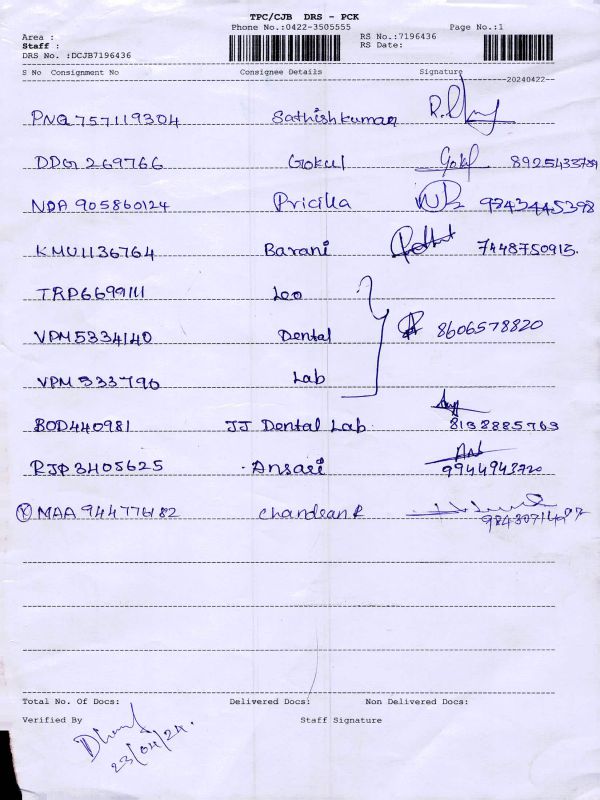 TPC/CJB DRS - PCK
Phone No.:0422-3505555 Page No.:1
Area :
Staff :
DRS No. :DCJB7196436
RS No.:7196436
RS Date:
S No Consignment No Consignee Details Signature
20240422
PNQ757119304 Sathishkumar
DDG269766 Gokul Gokul 8925433789
NDA905860124 Pricilla 9843445398
KMU1136764 Barani 7448750915.
TRP6699111 Leo
VPM5334140 Dental 8606578820
VPM533790 Lab
BOD440981 JJ Dental Lab. 8138885763
RJP3405625 Ansari 9944943720
MAA944776182 Chandran R
Total No. Of Docs: Delivered Docs: Non Delivered Docs:
Verified By Staff Signature
23/04/24.